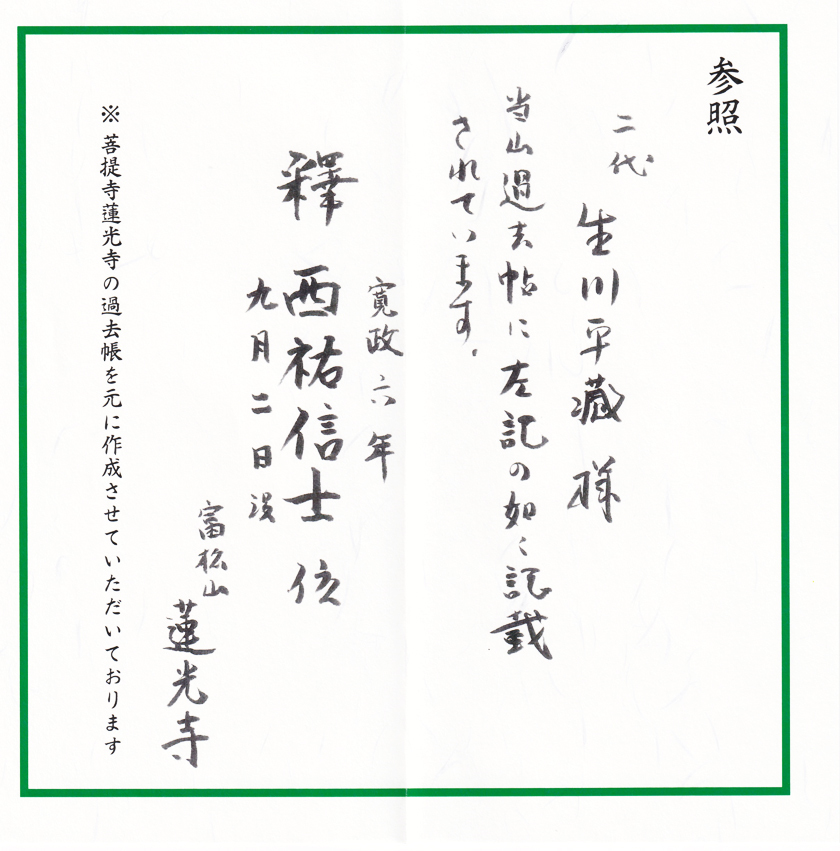 参照
二代
生川平藏 様
当山過去帖に左記の如く記載
されています。
寛政六年
釋 西祐信士 位
九月二日 没
富松山
蓮光寺
※菩提寺蓮光寺の過去帳を元に作成させていただいております